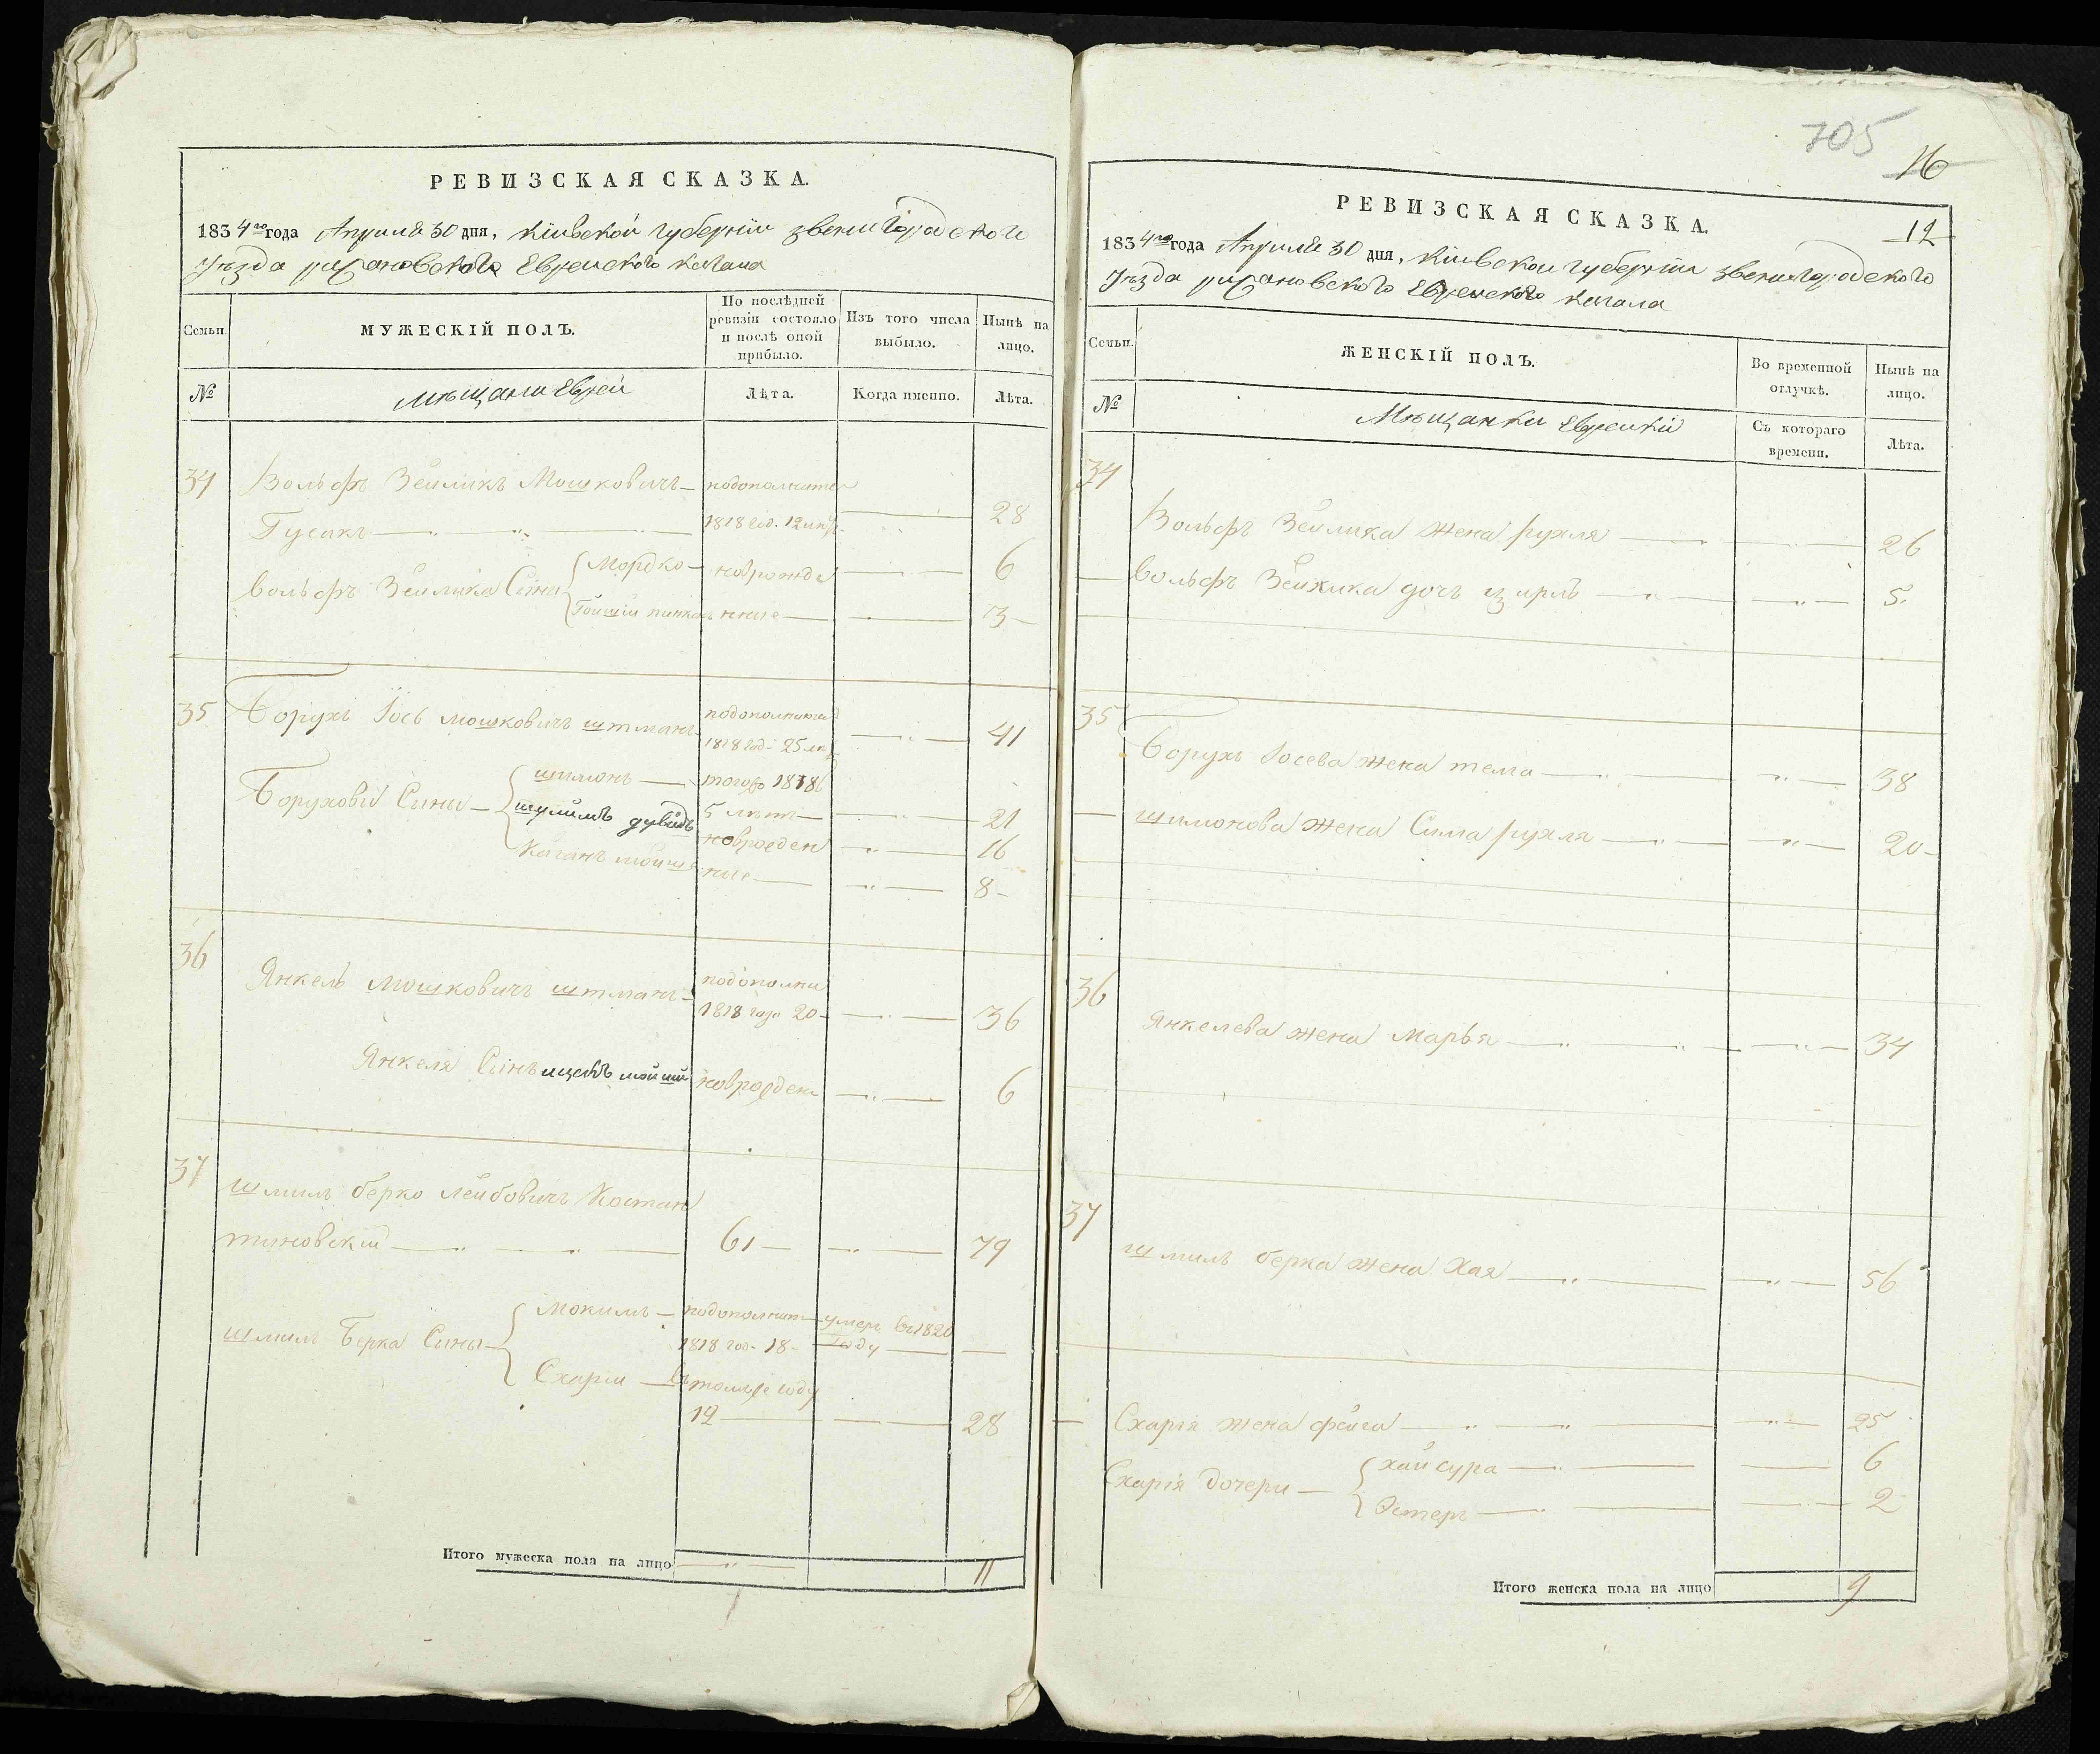 РЕВИЗСКАЯ СКАЗКА.
1834го года Апреля 30 дня, Кіевской губерніи звенигородского
Уезда рыжановского Еврейского кагала
Семьи.
МУЖЕСКІЙ ПОЛЪ.
По послѣдней ревизіи состояло и послѣ оной прибыло.
Изъ того числа выбыло.
Нынѣ на лицо.
№
Мѣщане Евреи
Лѣта.
Когда именно.
Лѣта.
34
Вольфъ Зейликъ Мошковичъ
Гусакъ
1818 год. 12
28
вольфъ Зейлика Сыны
Мордко
новорожде
6
нные
3
35
Борухъ Іось мошковичъ штманъ
1818 год 25
41
Борухови Сины
шимонъ
5 летъ
21
шулимъ дувидъ
новрожден
16
Каганъ мойше
ные
8
36
Янкель мошковичъ штманъ
подополни
1818 года 20
36
Янкеля Синъ ицекъ мойши
новрожден
6
37
шмиль берко лейбовичъ Костан
тиновский
61
79
шмиль Берка Сины
Мокимъ
1818 год. 18
умеръ въ 1820
году
Схария
в томже году
12
28
Итого мужеска пола на лицо
11
705
16
12
РЕВИЗСКАЯ СКАЗКА.
1834го года Апреля 30 дня, Кіевской губерніи звенигородского
Уезда рыжановского Еврейского кагала
Семьи.
ЖЕНСКІЙ ПОЛЪ.
Во временной отлучкѣ.
Нынѣ на лицо.
№
Мѣщанки Еврейки
Съ котораго времени.
Лѣта.
34
Вольфъ Зейлика жена рухля
26
Вольфъ Зейлика дочъ цирль
5
35
Борухъ Іосева жена тема
38
шимонова жена Сима рухля
20
36
Янкелева жена Марья
34
37
шмиль берка жена Хая
56
Схарія жена фейга
25
Схарія дочери
хай сура
6
Эстеръ
2
Итого женска пола на лицо
9